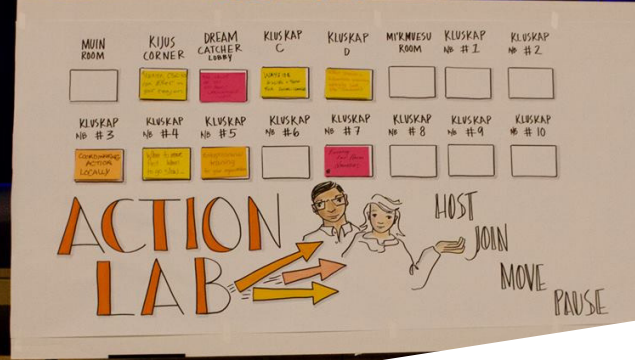 MUIN
ROOM
KIJUS
CORNER
DREAM
CATCHER
LOBBY
KLUSKAP
C
KLUSKAP
D
MI'KMUESU
ROOM
KLUSKAP
N/B #1
KLUSKAP
N/B #2
KLUSKAP
N/B #3
KLUSKAP
N/B #4
KLUSKAP
N/B #5
KLUSKAP
N/B #6
KLUSKAP
N/B #7
KLUSKAP
N/B #8
KLUSKAP
N/B #9
KLUSKAP
N/B #10
COORDINATING
ACTION
LOCALLY
ACTION
LAB
HOST
JOIN
MOVE
PAUSE